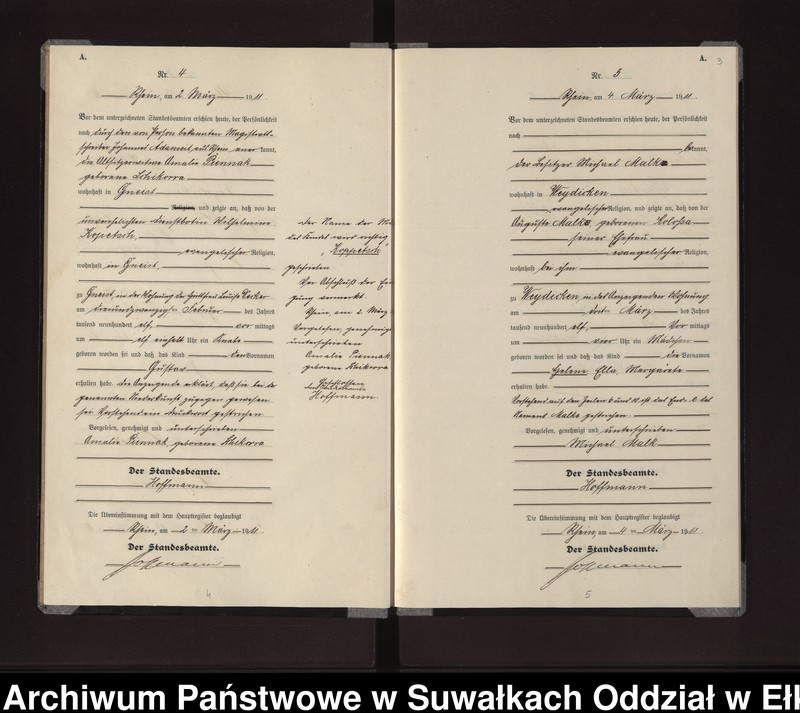 A.
Nr. 4
Rhein, am 2 März 1911.
Vor dem unterzeichneten Standesbeamten erschien heute, der Persönlichkeit
nach, durch den von Person bekannten Magistrats-
schreiber Johannes Adameit aus Rhein anerkannt,
die Altsitzerwitwe Amalie Piennak
geborene
wohnhaft in Gneist
Religion, und zeigte an, daß von der
unverehelichten Dienstbotin Wilhelmine
Kopetsch,
evangelischer Religion,
wohnhaft in Gneist,
zu Gneist, in der Wohnung der Luise
am dreiundzwanzigsten Februar des Jahres
tausend neunhundert elf, vor mittags
um elf einhalb Uhr ein Knabe
geboren worden sei und daß das Kind den Vornamen
Gustav
erhalten habe. Die Anzeigende erklärt, daß sie bei der
genannten Niederkunft zugegen gewesen
sei. Vorstehend ein Druckwort gestrichen
Vorgelesen, genehmigt und unterschrieben
Amalie Piennak, geborene
Der Standesbeamte.
Hoffmann
Die Übereinstimmung mit dem Hauptregister beglaubigt
Rhein, am 2 ten März 1911.
Der Standesbeamte.
Hoffmann
4
Der Name der
des Kindes wird richtig
"Koppetsch"
geschrieben
Vor Abschluß der
gung vermerkt.
Rhein, am 2. März
Vorgelesen, genehmigt
unterschrieben
Amalie Piennak
geborene
Der Standesbeamte
Hoffmann
A. 3
Nr. 5
Rhein, am 4 März 1911.
Vor dem unterzeichneten Standesbeamten erschien heute, der Persönlichkeit
nach
bekannt,
der Besitzer Michael Malk
wohnhaft in Weydicken
evangelischer Religion, und zeigte an, daß von der
Auguste Malk, geborenen Kolossa
seiner Ehefrau
evangelischer Religion,
wohnhaft bei ihm
zu Weydicken in des Anzeigenden Wohnung
am März des Jahres
tausend neunhundert elf, Vor mittags
um vier Uhr ein Mädchen
geboren worden sei und daß das Kind die Vornamen
Helene Ella Margarete
erhalten habe.
Vorstehend auf den Zeilen 6 und 11 ist das End- e des
Namens Malke gestrichen.
Vorgelesen, genehmigt und unterschrieben
Michael Malk
Der Standesbeamte.
Hoffmann
Die Übereinstimmung mit dem Hauptregister beglaubigt
Rhein, am 4 ten März 1911.
Der Standesbeamte.
Hoffmann
5
Archiwum Państwowe w Suwałkach Oddział w Ełk